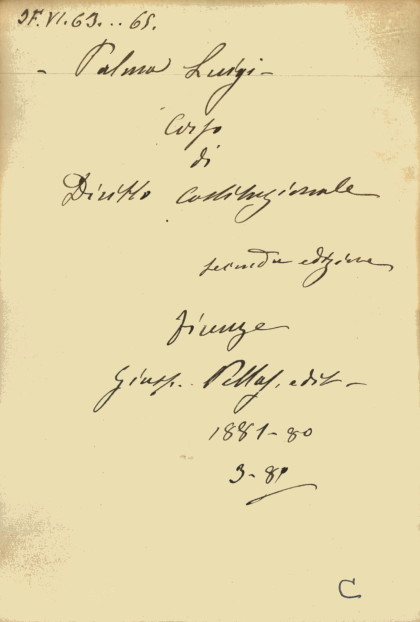 JF.VI.63...65.
- Palma Luigi -
Corso
di
Diritto costituzionale
seconda edizione
Firenze
Gius. Pellas, edit -
1881-80
3-8º
C